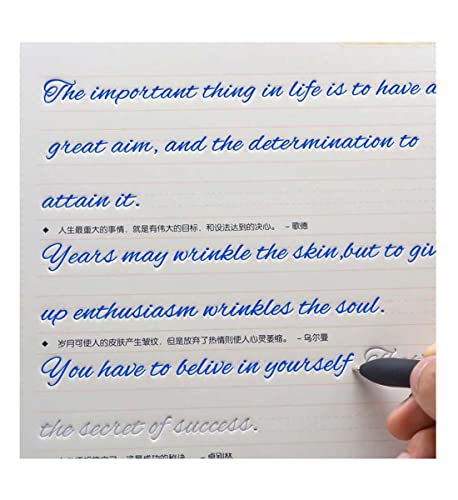 The important thing in life is to have a
great aim, and the determination to
attain it.
◆ 人生最重大的事情，就是有伟大的目标，和设法达到的决心。 －歌德
Years may wrinkle the skin,but to giv
up enthusiasm wrinkles the soul.
◆ 岁月可使人的皮肤产生皱纹，但是放弃了热情则使人心灵萎缩。 －乌尔曼
You have to belive in yourself
the secret of success.
是成功的秘诀。 －卓别林